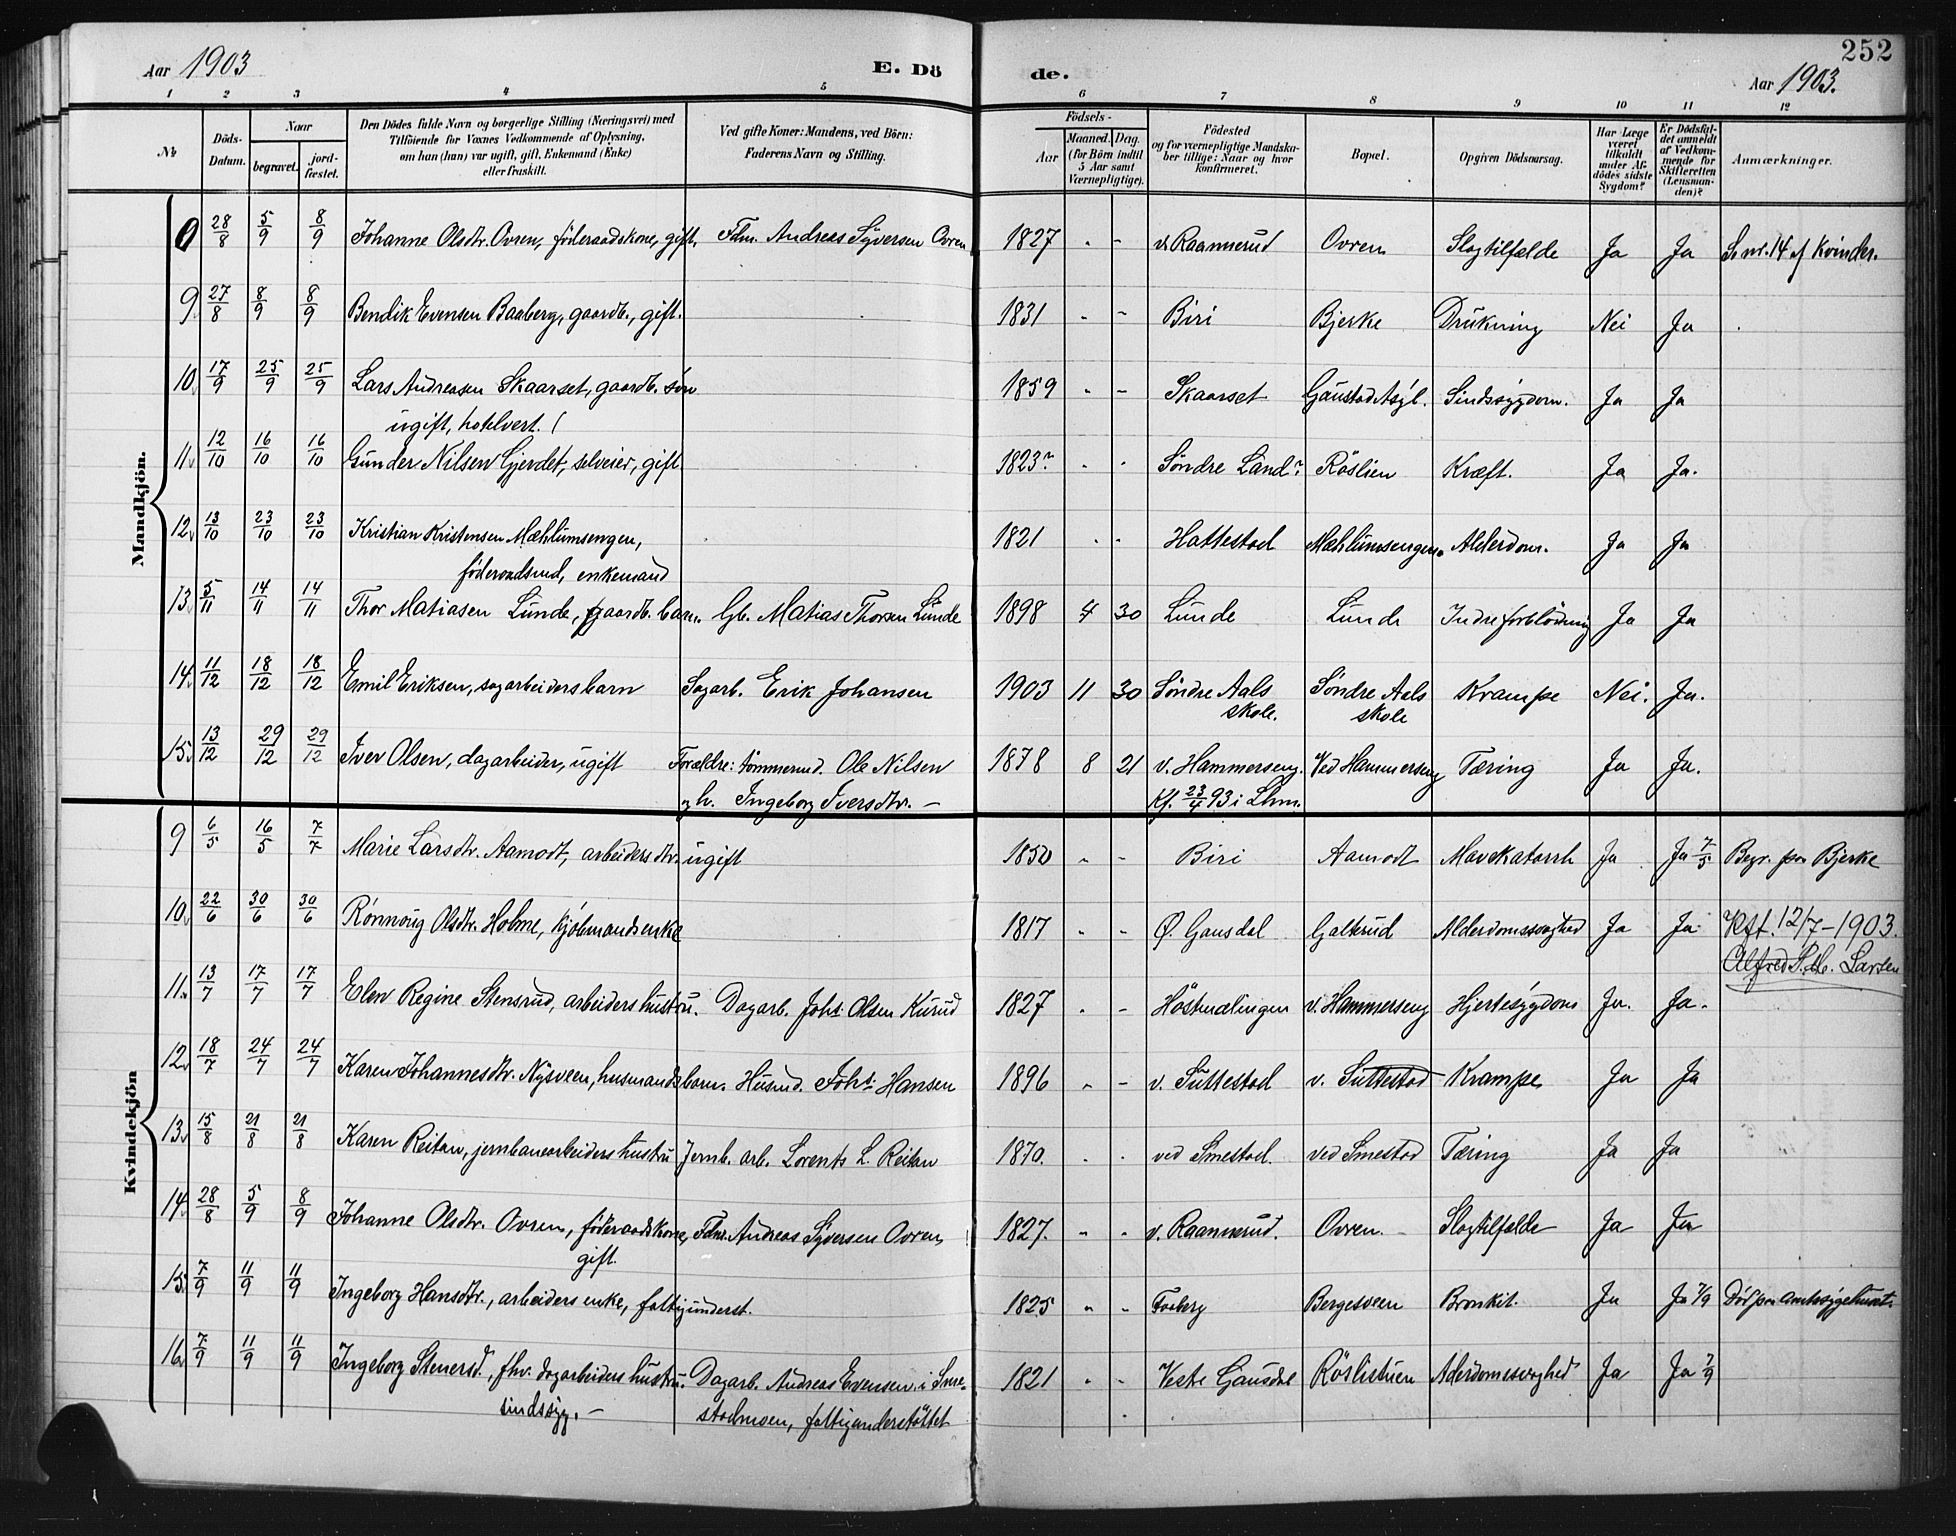 252
Aar 1903 E. Dö de. Aar 1903.
1 2 3 4 5 6 7 8 9 10 11 12
No Döds-Datum. Naar begravet. jord-fæstet. Den Dödes fulde Navn og borgerlige Stilling (Næringsvei) med Tilföiende for Voxnes Vedkommende af Oplysning, om han (hun) var ugift, gift, Enkemand (Enke) eller fraskilt. Ved gifte Koner: Mandens, ved Börn: Faderens Navn og Stilling. Födsels- Aar Maaned. Dag. (for Börn indtil 5 Aar samt Værnepligtige). Födested og for værnepligtige Mandskaber tillige: Naar og hvor konfirmeret. Bopæl. Opgiven Dödsaarsag. Har Læge været tilkaldt under Afdödes sidste Sygdom? Er Dödsfaldet anmeldt af Vedkommende for Skifteretten (Lensmanden)? Anmærkninger.
Mandkjön.
28/8 5/9 8/9 Johanne Olsdtr. Ovren, föderaadskone, gift. Fdm. Andreas Syversen Ovren 1827 " - v. Raannerud Ovren Slagtilfælde Ja Ja Se nr. 14 af Kvinder.
9 27/8 8/9 8/9 Bendik Evensen Baaberg, gaardb., gift. 1831 " - Biri Bjerke Drukning Nei Ja
10 17/9 25/9 25/9 Lars Andreasen Skaarset, gaardb. sön 1859 " - Skaarset Gaustad Asyl. Sindssygdom. Ja Ja
ugift, hotelvert. (
11 12/10 16/10 16/10 Gunder Nilsen Gjerdet, selveier, gift 1823? " " Söndre Land? Röslien Kræft. Ja Ja.
12 13/10 23/10 23/10 Kristian Kristensen Mæhlumsengen, 1821 " " Hattestad Mæhlumsengen. Alderdom. Ja Ja
föderaadsmd, enkemand
13 5/11 14/11 14/11 Thor Matiasen Lunde, gaardb. barn. Gb. Matias Thorsen Lunde 1898 4 30 Lunde Lunde Indre forblödning Ja Ja
14 11/12 18/12 18/12 Emil Eriksen, sagarbeiders barn Sagarb. Erik Johansen 1903 11 30 Söndre Aals Söndre Aals Krampe Nei. Ja.
skole. skole
15 13/12 29/12 29/12 Iver Olsen, dagarbeider, ugift Forældre: tömmermd. Ole Nilsen 1878 8 21 v. Hammerseng. Ved Hammerseng Tæring Ja Ja.
og h. Ingeborg Iversdtr. - Kf. 23/4 93 i Lhm.
Kvindekjön
9 6/5 16/5 7/7 Marie Larsdtr. Aamodt, arbeiders dtr. ugift 1850 " - Biri Aamodt Mavekatarrh Ja Ja 7/5 Begr. paa Bjerke
10 22/6 30/6 30/6 Rönnoug Olsdtr. Holme, kjöbmands enke 1817 " - Ö. Gausdal Galterud Alderdomssvaghed Ja Ja 12/7-1903.
Alfred Larsen
11 13/7 17/7 17/7 Elen Regine Stensrud, arbeiders hustru. Dagarb. Johs. Olsen Kurud 1827 " - Höstmælingen v. Hammerseng Hjertesygdom Ja. Ja.
12 18/7 24/7 24/7 Karen Johannesdtr. Nysveen, husmandsbarn. Husmd. Johs. Hansen 1896 " - v. Suttestad v. Suttestad Krampe Ja Ja
13 15/8 21/8 21/8 Karen Reitan, jernbanearbeiders hustru Jernb. arb. Lorents L. Reitan 1870. " " ved Smestad. ved Smestad Tæring Ja Ja
14 28/8 5/9 8/9 Johanne Olsdtr. Ovren, föderaadskone, Fdm. Andreas Syversen Ovren, 1827. " - v. Raannerud. Ovren. - Slagtilfælde Ja Ja
gift.
15 7/9 11/9 11/9 Ingeborg Hansdtr., arbeiders enke, fattigunderst. 1825 " - Faaberg Bergesveen Bronkit. Ja Ja 7/9 Död paa Amtssygehuset.
16 7/9 11/9 11/9 Ingeborg Stenersd., fhv. dagarbeiders hustru. Dagarb. Andreas Evensen i Sme- 1821 " - Vestre Gausdal Röslistuen Alderdomssvaghed Ja Ja 7/9
sindssyg. - stadmoen, fattigunderstöttet